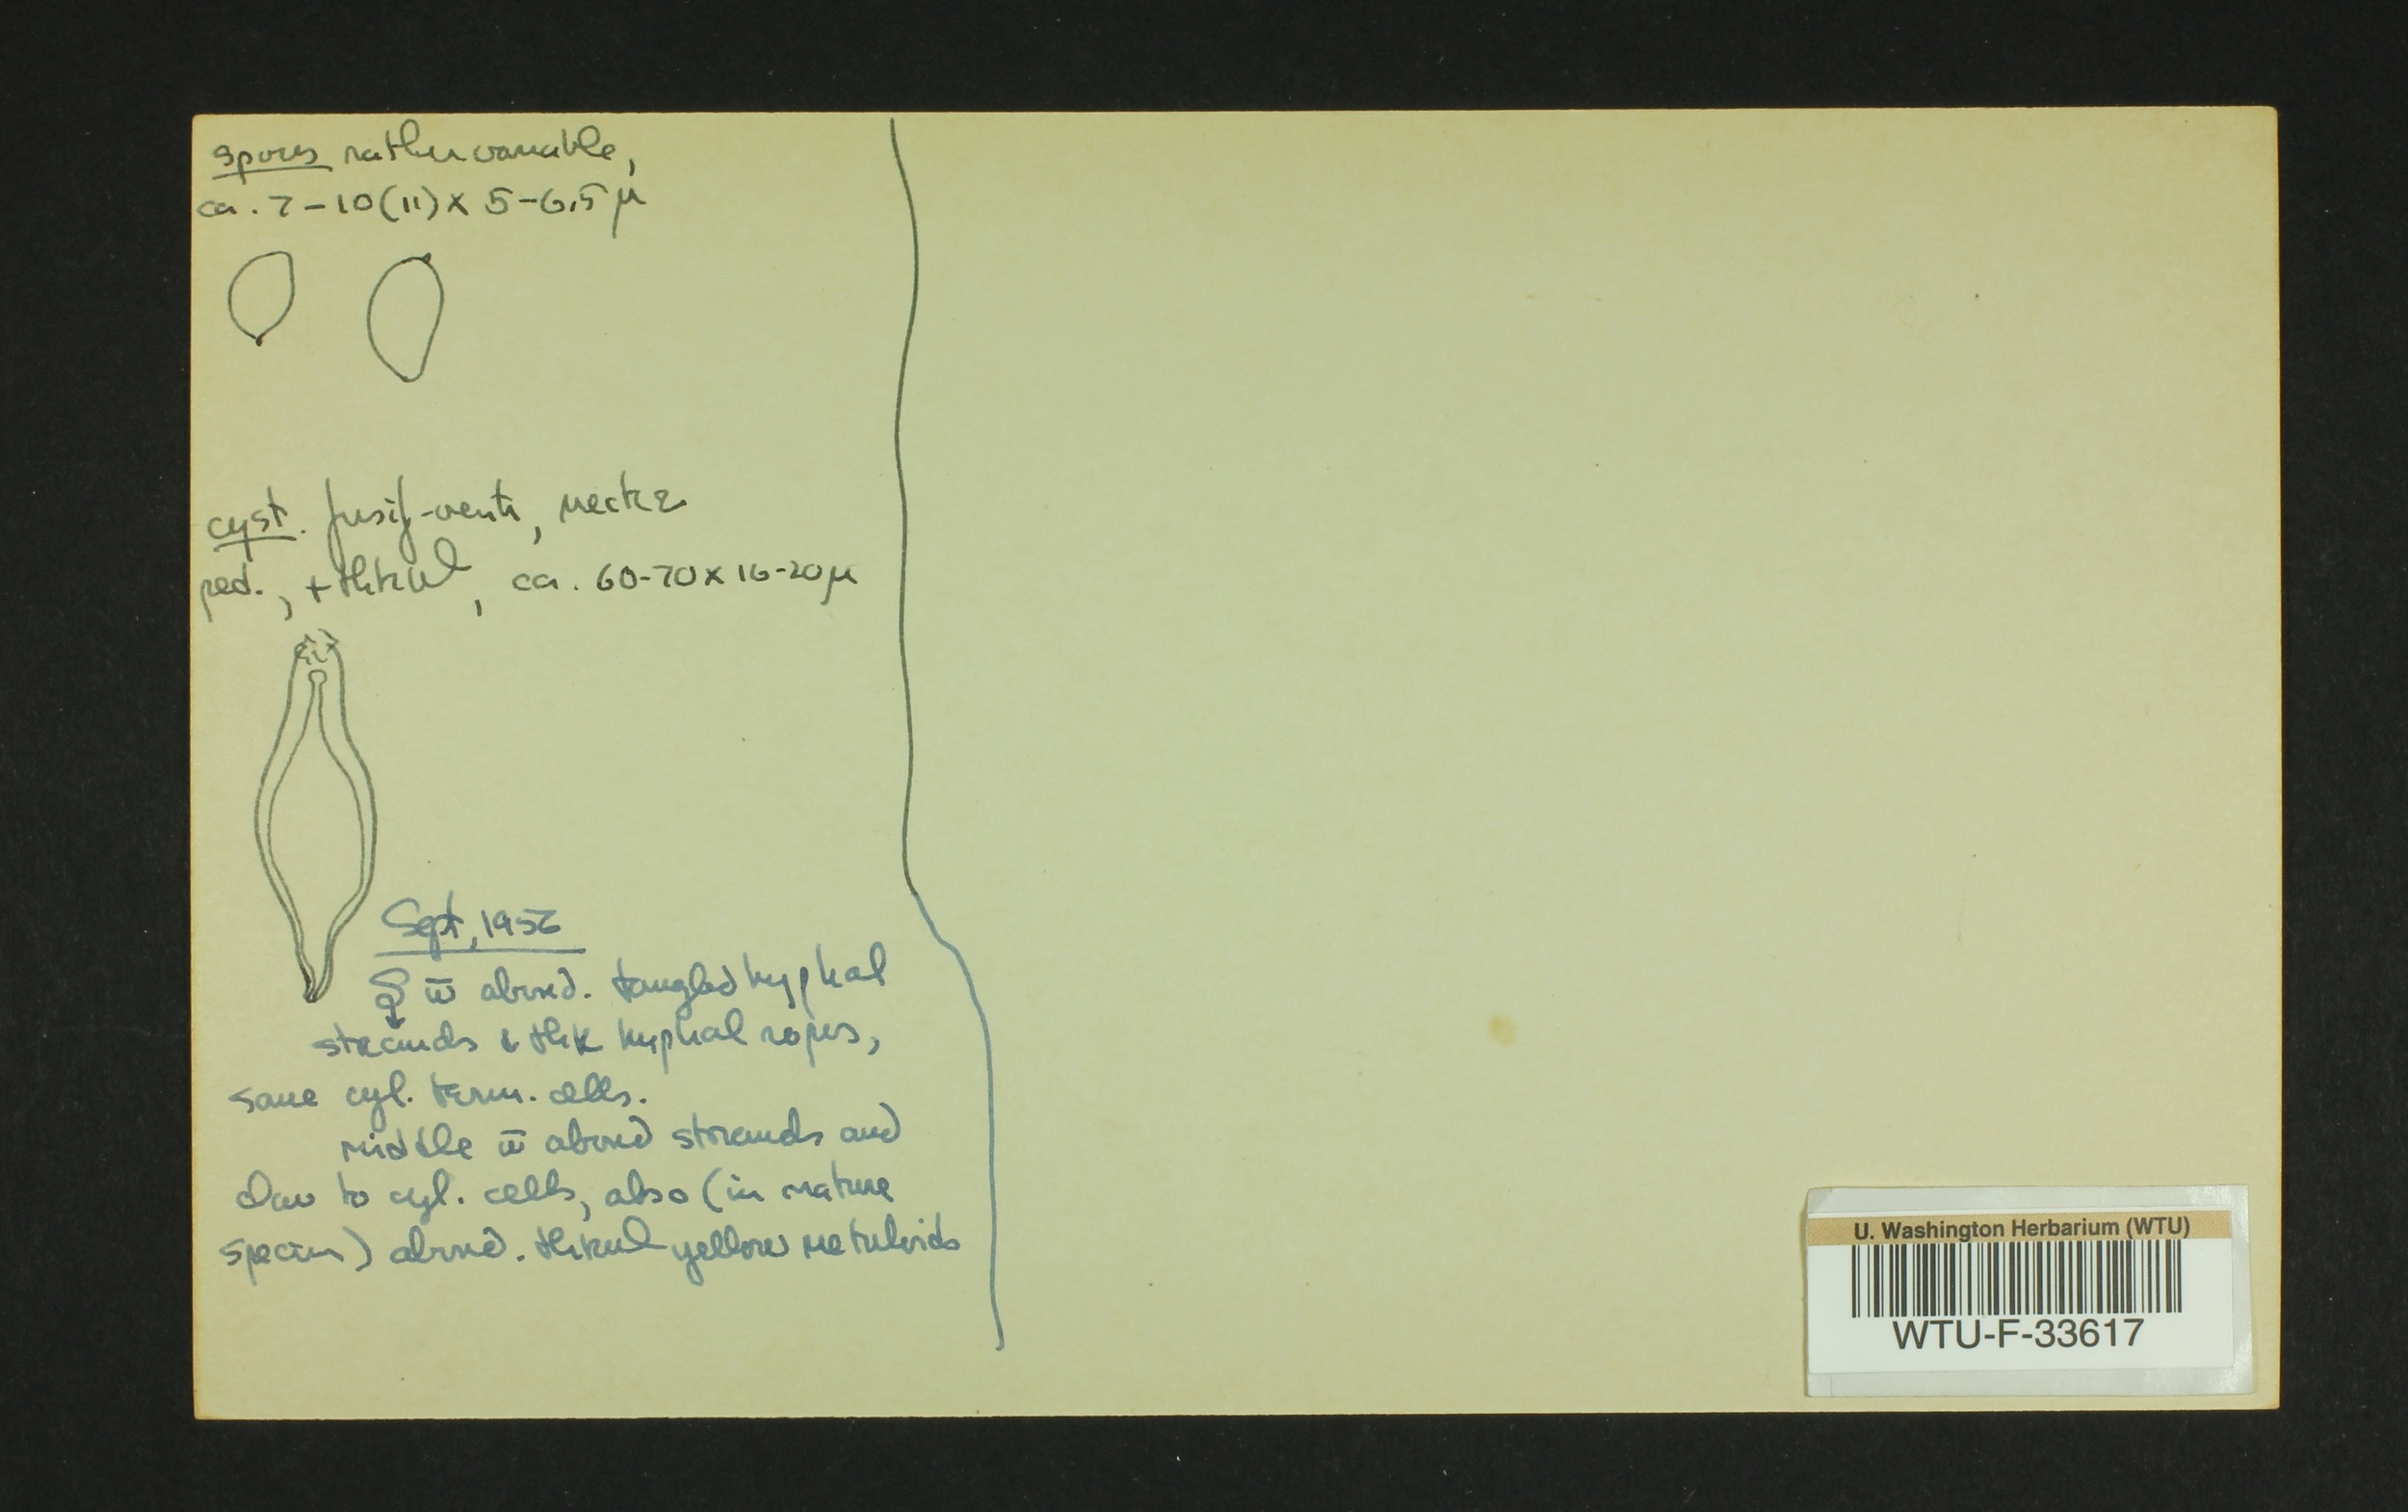 spores rather variable,
ca. 7-10(11) x 5-6.5 µ
cyst. fusif-ventr, neck &
ped., + thkwl, ca. 60-70 x 16-20 µ
Sept, 1956
w̄ abund. tangled hyphal
strands & thk hyphal ropes,
same cyl. term. cells.
middle w̄ abund strands and
clav to cyl. cells, also (in mature
specim) abund. thkwl yellow metuloids
U. Washington Herbarium (WTU)
WTU-F-33617